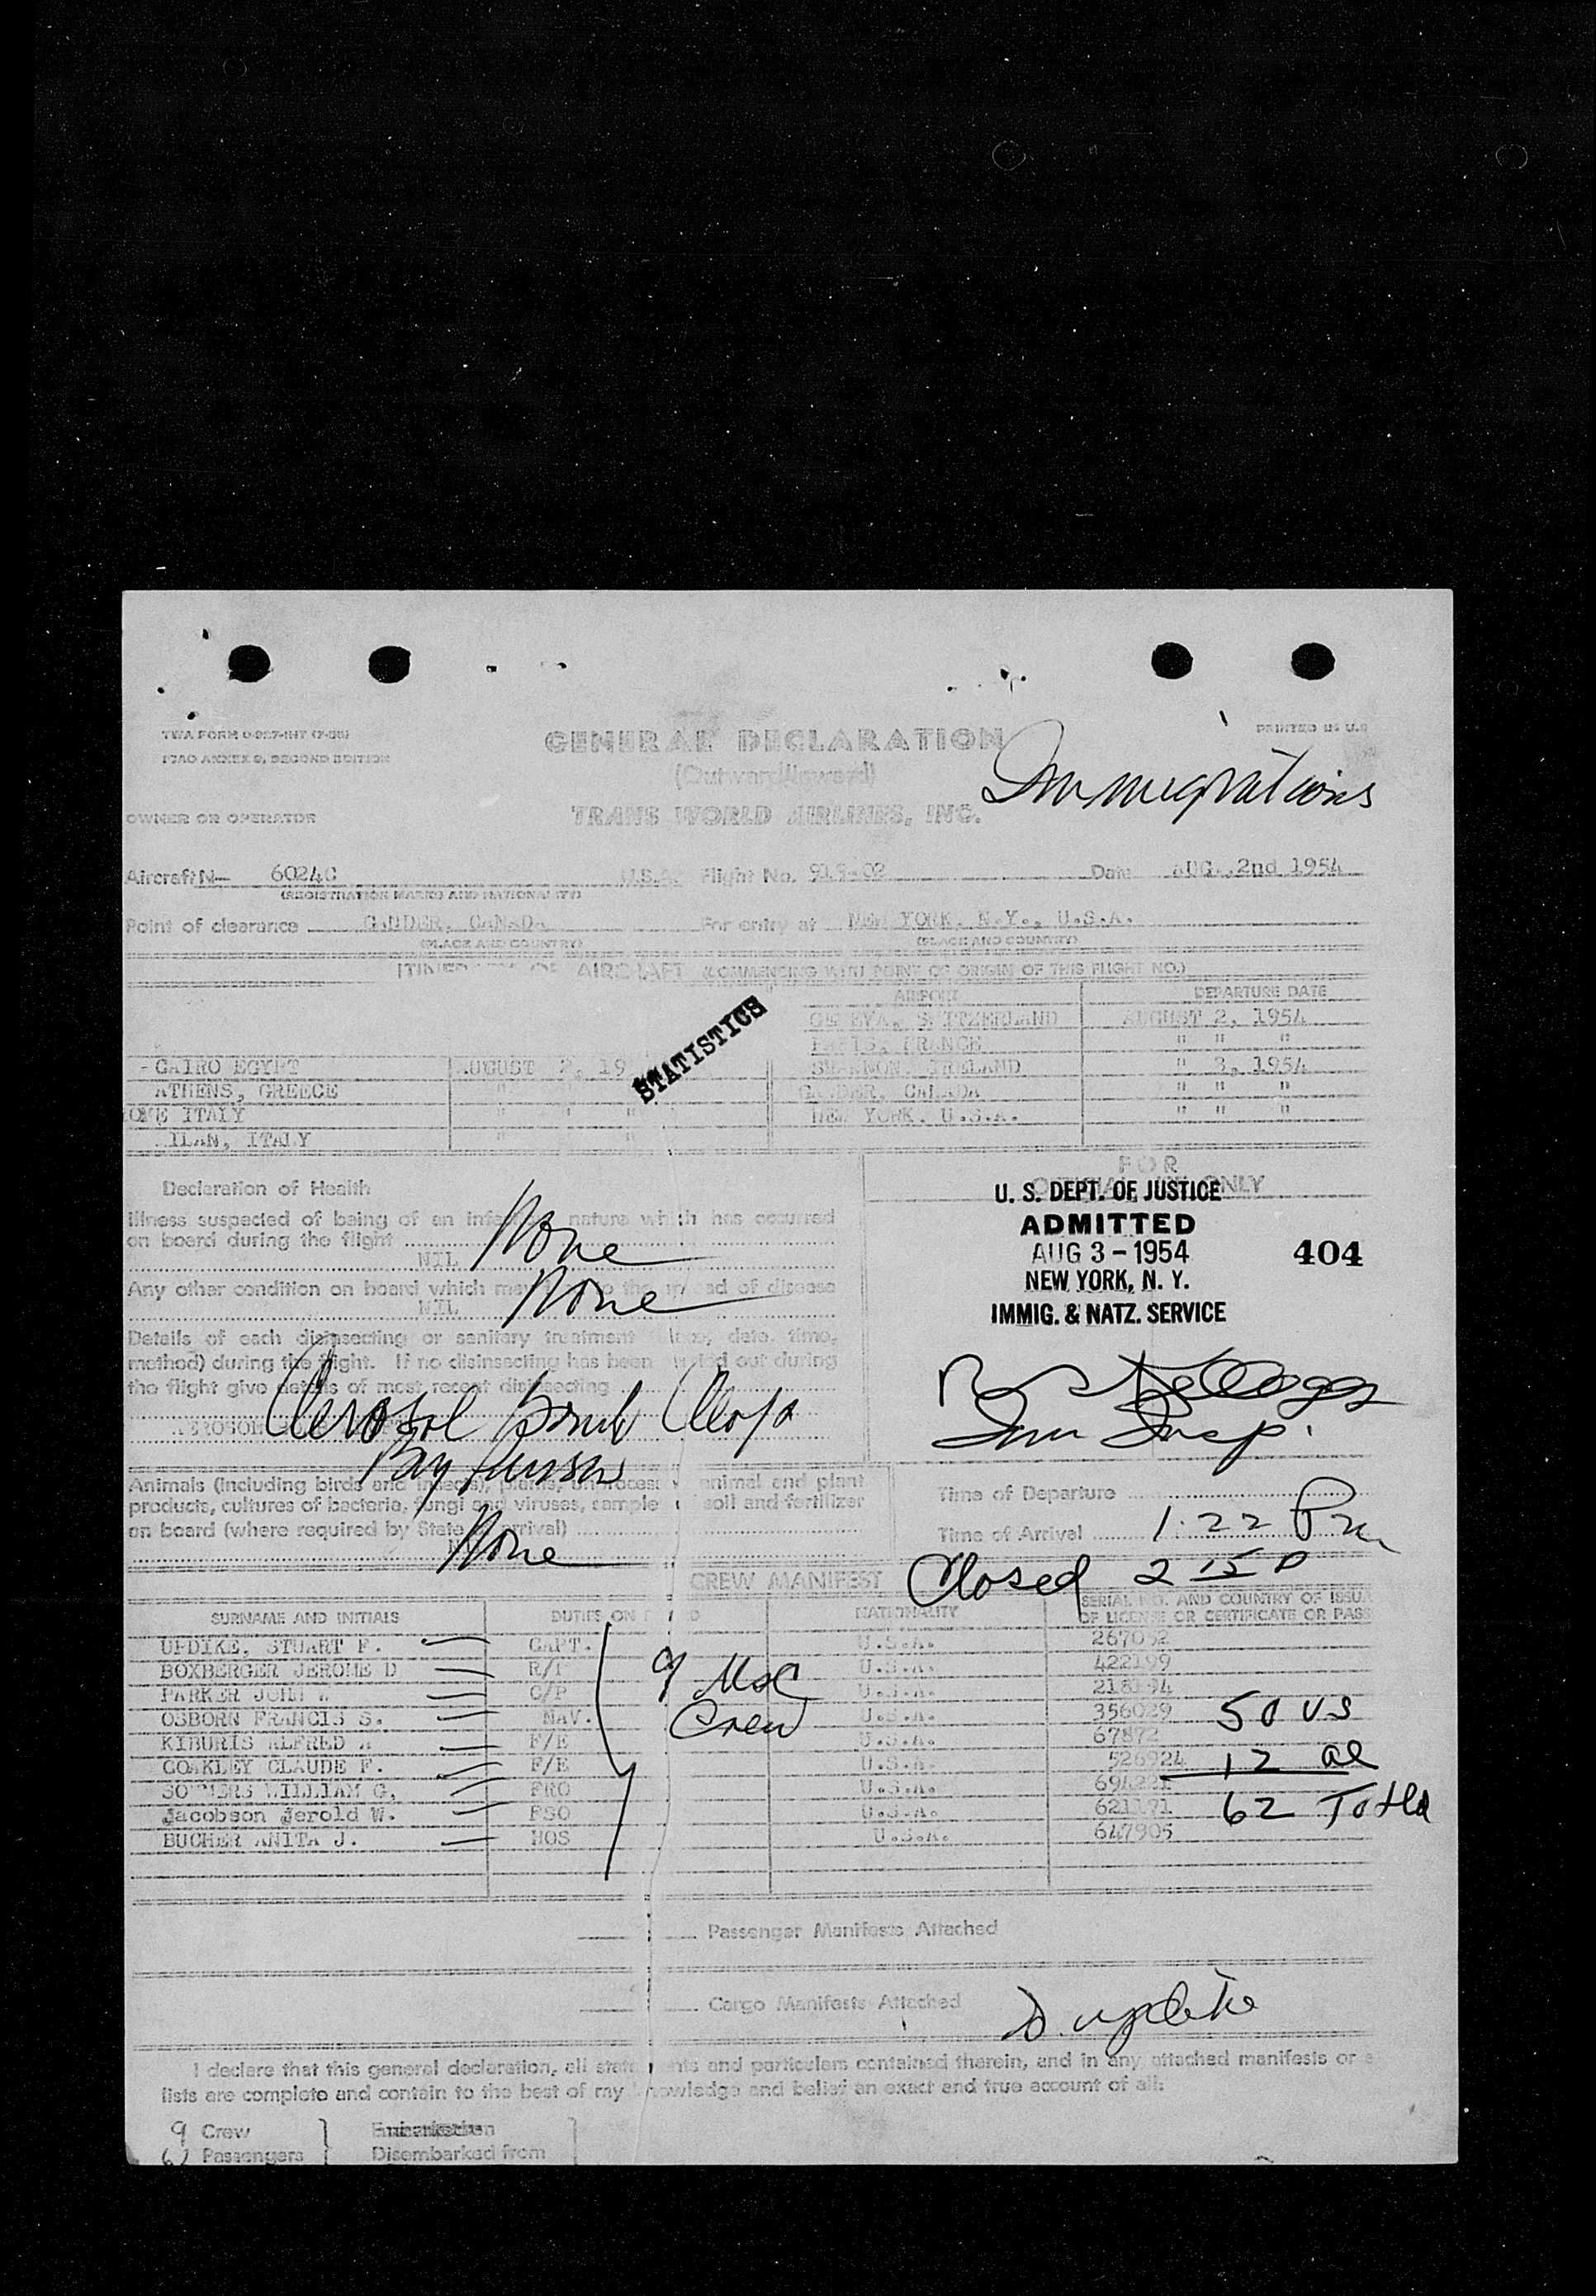 TWA FORM
ICAO ANNEX 9, SECOND EDITION
GENERAL DECLARATION
(Outward/Inward)
TRANS WORLD AIRLINES, INC.
PRINTED IN U.S
Immigrations
OWNER OR OPERATOR
Aircraft N- 6024C U.S.A. Flight No. Date AUG. 2nd 1954
(REGISTRATION MARKS AND NATIONALITY)
Point of clearance GANDER, CANADA For entry at NEW YORK, N.Y., U.S.A.
(PLACE AND COUNTRY) (PLACE AND COUNTRY)
OF AIRCRAFT (COMMENCING WITH POINT OF ORIGIN OF THIS FLIGHT NO.)
AIRPORT DEPARTURE DATE
GENEVA, SWITZERLAND AUGUST 2, 1954
PARIS, FRANCE " " "
STATISTICS
CAIRO EGYPT AUGUST 2, 19 SHANNON, IRELAND " 3, 1954
ATHENS, GREECE " " " GANDER, CANADA " " "
OME ITALY " " " NEW YORK, U.S.A. " " "
ILAN, ITALY " "
Declaration of Health
Illness suspected of being of an nature which has occurred
on board during the flight
NIL None
Any other condition on board which may the of disease
NIL None
Details of each disinsecting or sanitary treatment date, time,
method) during the flight. If no disinsecting has been out during
the flight give details of most recent disinsecting
Aerosol bomb
AEROSOL
Animals (including birds and insects), plants, animal and plant
products, cultures of bacteria, fungi and viruses, sample soil and fertilizer
on board (where required by State arrival)
None
FOR
ONLY
U. S. DEPT. OF JUSTICE
ADMITTED
AUG 3 - 1954 404
NEW YORK, N. Y.
IMMIG. & NATZ. SERVICE
Kellogg
Imm Insp.
Time of Departure
Time of Arrival 1:22 Pm
Closed 2 15 P
CREW MANIFEST
SURNAME AND INITIALS DUTIES ON NATIONALITY SERIAL NO. AND COUNTRY OF ISSU
OF LICENSE OR CERTIFICATE OR PASS
UPDIKE, STUART F. CAPT. U.S.A.
BOXBERGER JEROME D U.S.A. 422199
PARKER JOHN U.S.A.
OSBORN FRANCIS S. NAV. U.S.A. 356029
KIBURIS ALFRED F/E U.S.A. 67872
COAKLEY CLAUDE F. F/E U.S.A. 526924
SOMMERS WILLIAM G. U.S.A.
Jacobson Jerold W. U.S.A.
BUCHER ANITA J. HOS U.S.A. 647905
9 USC
Crew
50 US
12 al
62 Total
Passenger Manifests Attached
Cargo Manifests Attached
S. Updike
I declare that this general declaration, all and particulars contained therein, and in any attached manifests or
lists are complete and contain to the best of my knowledge and belief an exact and true account of all:
9 Crew
Passengers Disembarked from